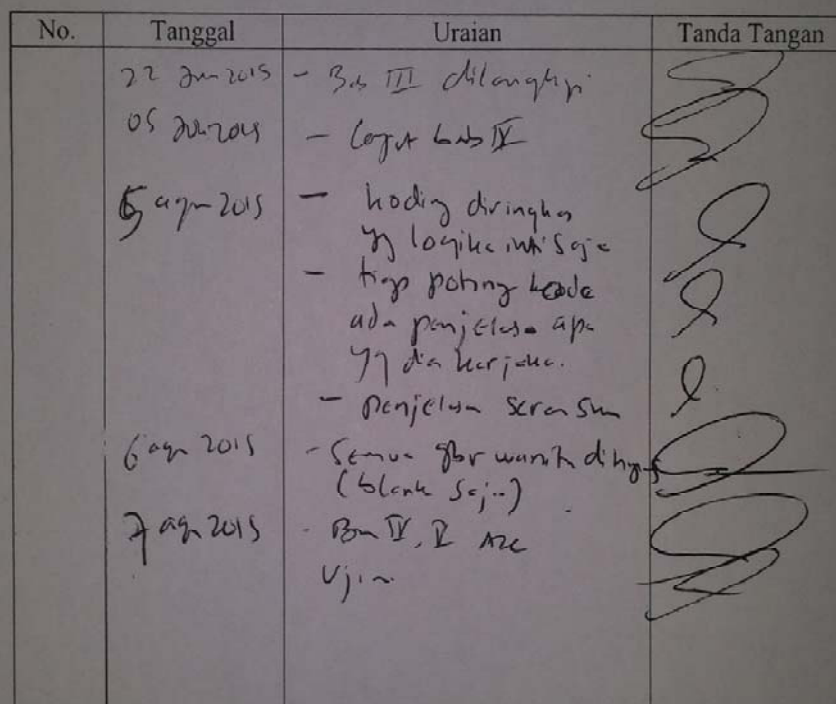 No. Tanggal Uraian Tanda Tangan
22 Jun 2015 - Bab III dilengkapi
05 Juli 2015 - Lanjut bab IV
5 agu 2015 - koding diringkas
yg logika inti saja
- tiap potong kode
ada penjelasan apa
yg dia kerjakan.
- penjelasan screen
6 agu 2015 - Semua gbr wanita dihapus
(blank saja..)
7 agu 2015 - Bab IV, V Acc
Ujian